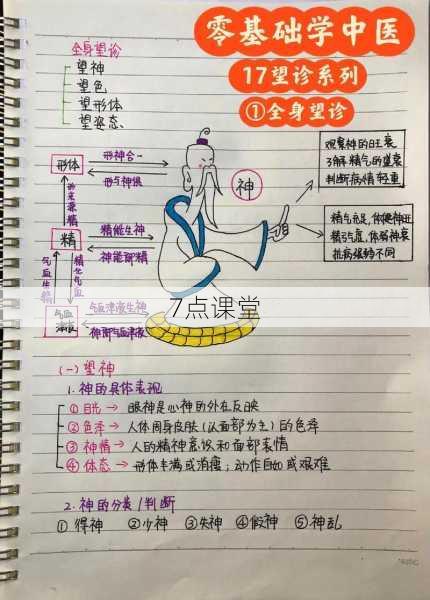 零基础学中医
17望诊系列
①全身望诊
全身望诊
望神
望色
望形体
望姿态
形体
形神合一
形与神俱
神
观察神的旺衰
了解精气的盛衰
判断病情轻重
精
精能生神
神能御精
精气充足,体健神旺
精气亏虚,体弱神衰
抗病强弱不同
气血生精
精化气血
气血
津液
气血津液生神
神御气血津液
7点课堂
(一)望神
1.神的具体表现
①目光→眼神是心神的外在反映
②色泽→人体周身皮肤(以面部为主)的色泽
③神情→人的精神意识和面部表情
④体态→形体丰满或消瘦;动作自如或艰难
2.神的分类/判断
①得神 ②少神 ③失神 ④假神 ⑤神乱